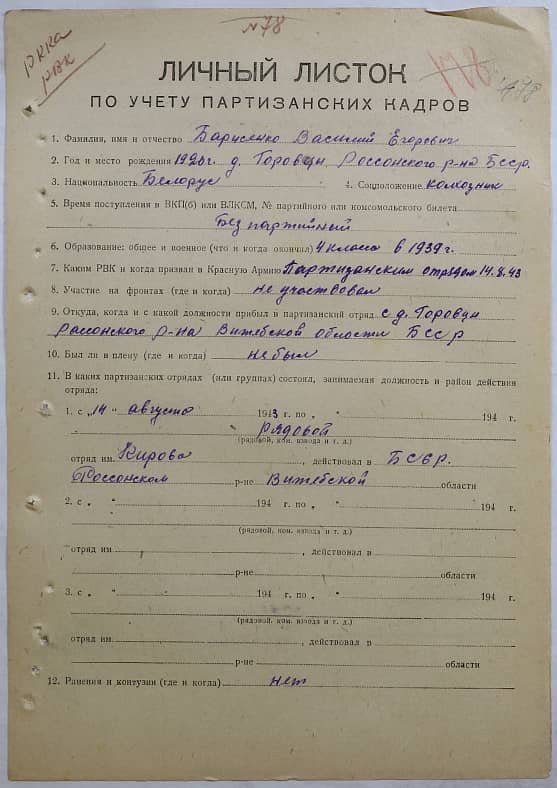 №78
РККА
РВК
178
478
ЛИЧНЫЙ ЛИСТОК
ПО УЧЕТУ ПАРТИЗАНСКИХ КАДРОВ
1. Фамилия, имя и отчество Барисенко Василий Егорович
2. Год и место рождения 1926г д. Горовцы Россонского р-на БССР.
3. Национальность Белорус 4. Соцположение колхозник
5. Время поступления в ВКП(б) или ВЛКСМ, № партийного или комсомольского билета
Без партийный
6. Образование: общее и военное (что и когда окончил) 4 класса в 1939 г.
7. Каким РВК и когда призван в Красную Армию Партизанским отрядом 14.8.43
8. Участие на фронтах (где и когда) не участвовал
9. Откуда, когда и с какой должности прибыл в партизанский отряд с д. Горовцы
Россонского р-на Витебской области БССР
10. Был ли в плену (где и когда) не был
11. В каких партизанских отрядах (или группах) состоял, занимаемая должность и район действия
отряда:
1. с „14 “ августа 1943 г. по „ “ 194 г.
рядовой
(рядовой, ком. взвода и т. д.)
отряд им. Кирова , действовал в БССР.
Россонском р-не Витебской области
2. с „ “ 194 г. по „ “ 194 г.
(рядовой, ком. взвода и т. д.)
отряд им , действовал в
р-не области
3. с „ “ 194 г. по „ “ 194 г.
(рядовой, ком. взвода и т. д.)
отряд им , действовал в
р-не области
12. Ранения и контузии (где и когда) нет